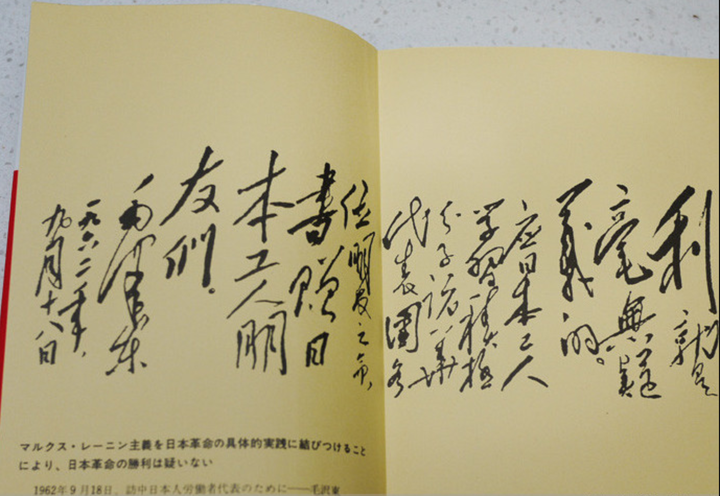 利就是
毫無疑
義的。
应日本工人
学習積極
分子訪華
代表團各
位朋友之命，
書贈日
本工人朋
友們.
毛澤東
一九六二年，
九月十八日
マルクス・レーニン主義を日本革命の具体的実践に結びつけること
により、日本革命の勝利は疑いない
1962年9月18日、訪中日本人労働者代表のために——毛沢東